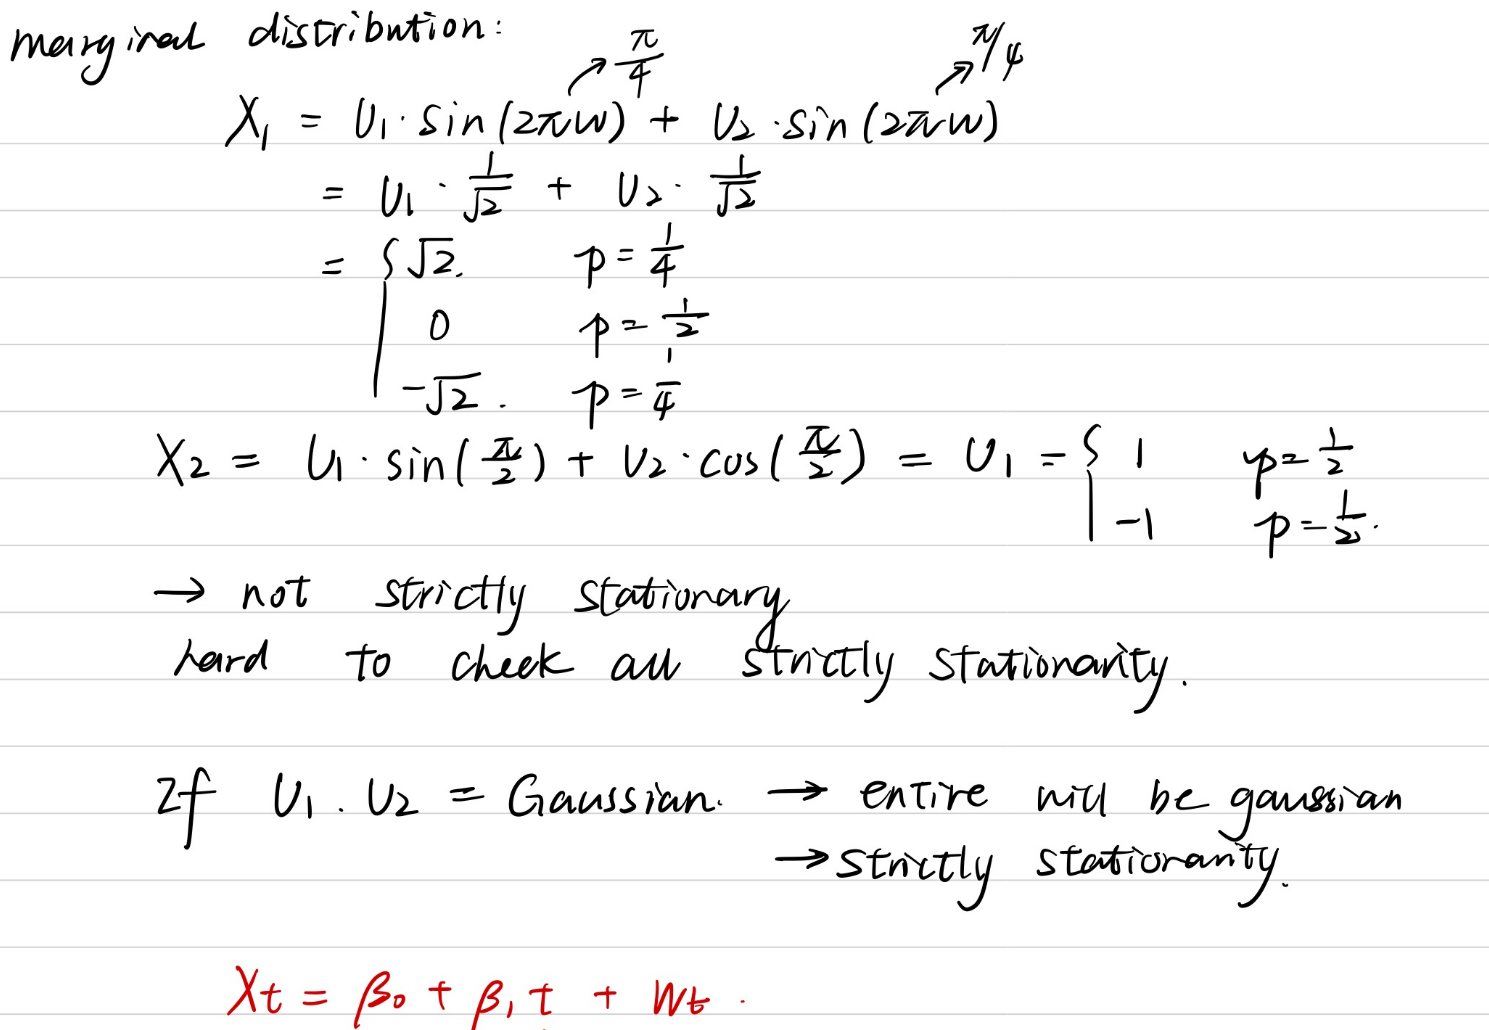 marginal distribution:
π/4 π/4
X₁ = U₁·sin(2πw) + U₂·sin(2πw)
= U₁·1/√2 + U₂·1/√2
= { √2. p = 1/4
0 p = 1/2
-√2. p = 1/4
X₂ = U₁·sin(π/2) + U₂·cos(π/2) = U₁ = { 1 p = 1/2
-1 p = 1/2.
→ not strictly stationary
hard to check all strictly stationarity.
If U₁. U₂ = Gaussian. → entire will be gaussian
→ strictly stationarity.
Xt = β₀ + β₁t + Wt.